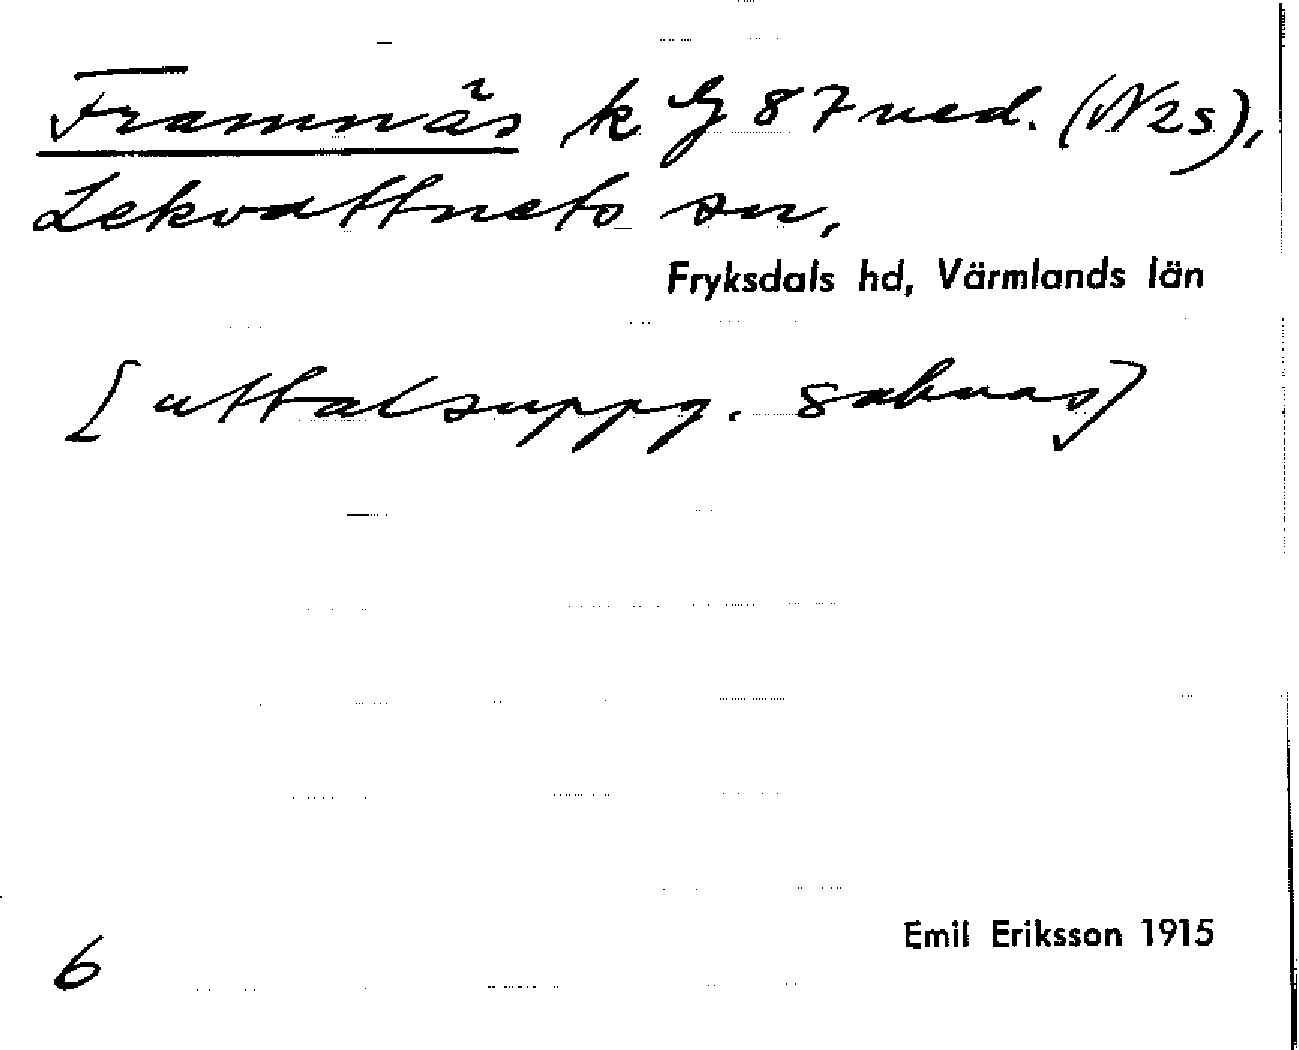 Framnäs k G 87 ned. (N2s),
Lekvattnets sn,
Fryksdals hd, Värmlands län
[uttalsuppg. saknas]
Emil Eriksson 1915
6